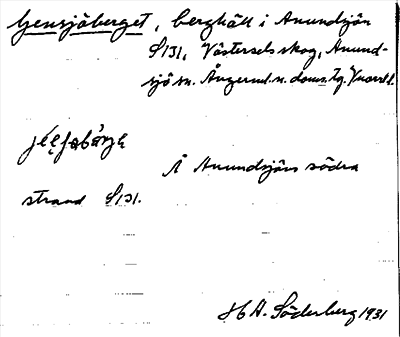 Gensjöberget, berghäll i Anundsjön
S131, Västersels skog, Anund-
sjö sn. Ångerml. n. doms. tg.
Å Anundsjöns södra
strand S131.
H A. Söderberg 1931